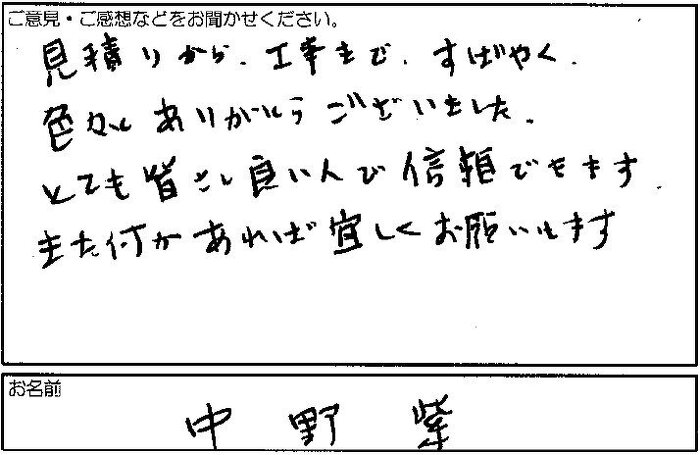 ご意見・ご感想などをお聞かせください。
見積りから、工事まで、すばやく、
色々とありがとうございました。
とても皆さん良い人で信頼できます。
また何かあれば宜しくお願いします
お名前
中野 紫